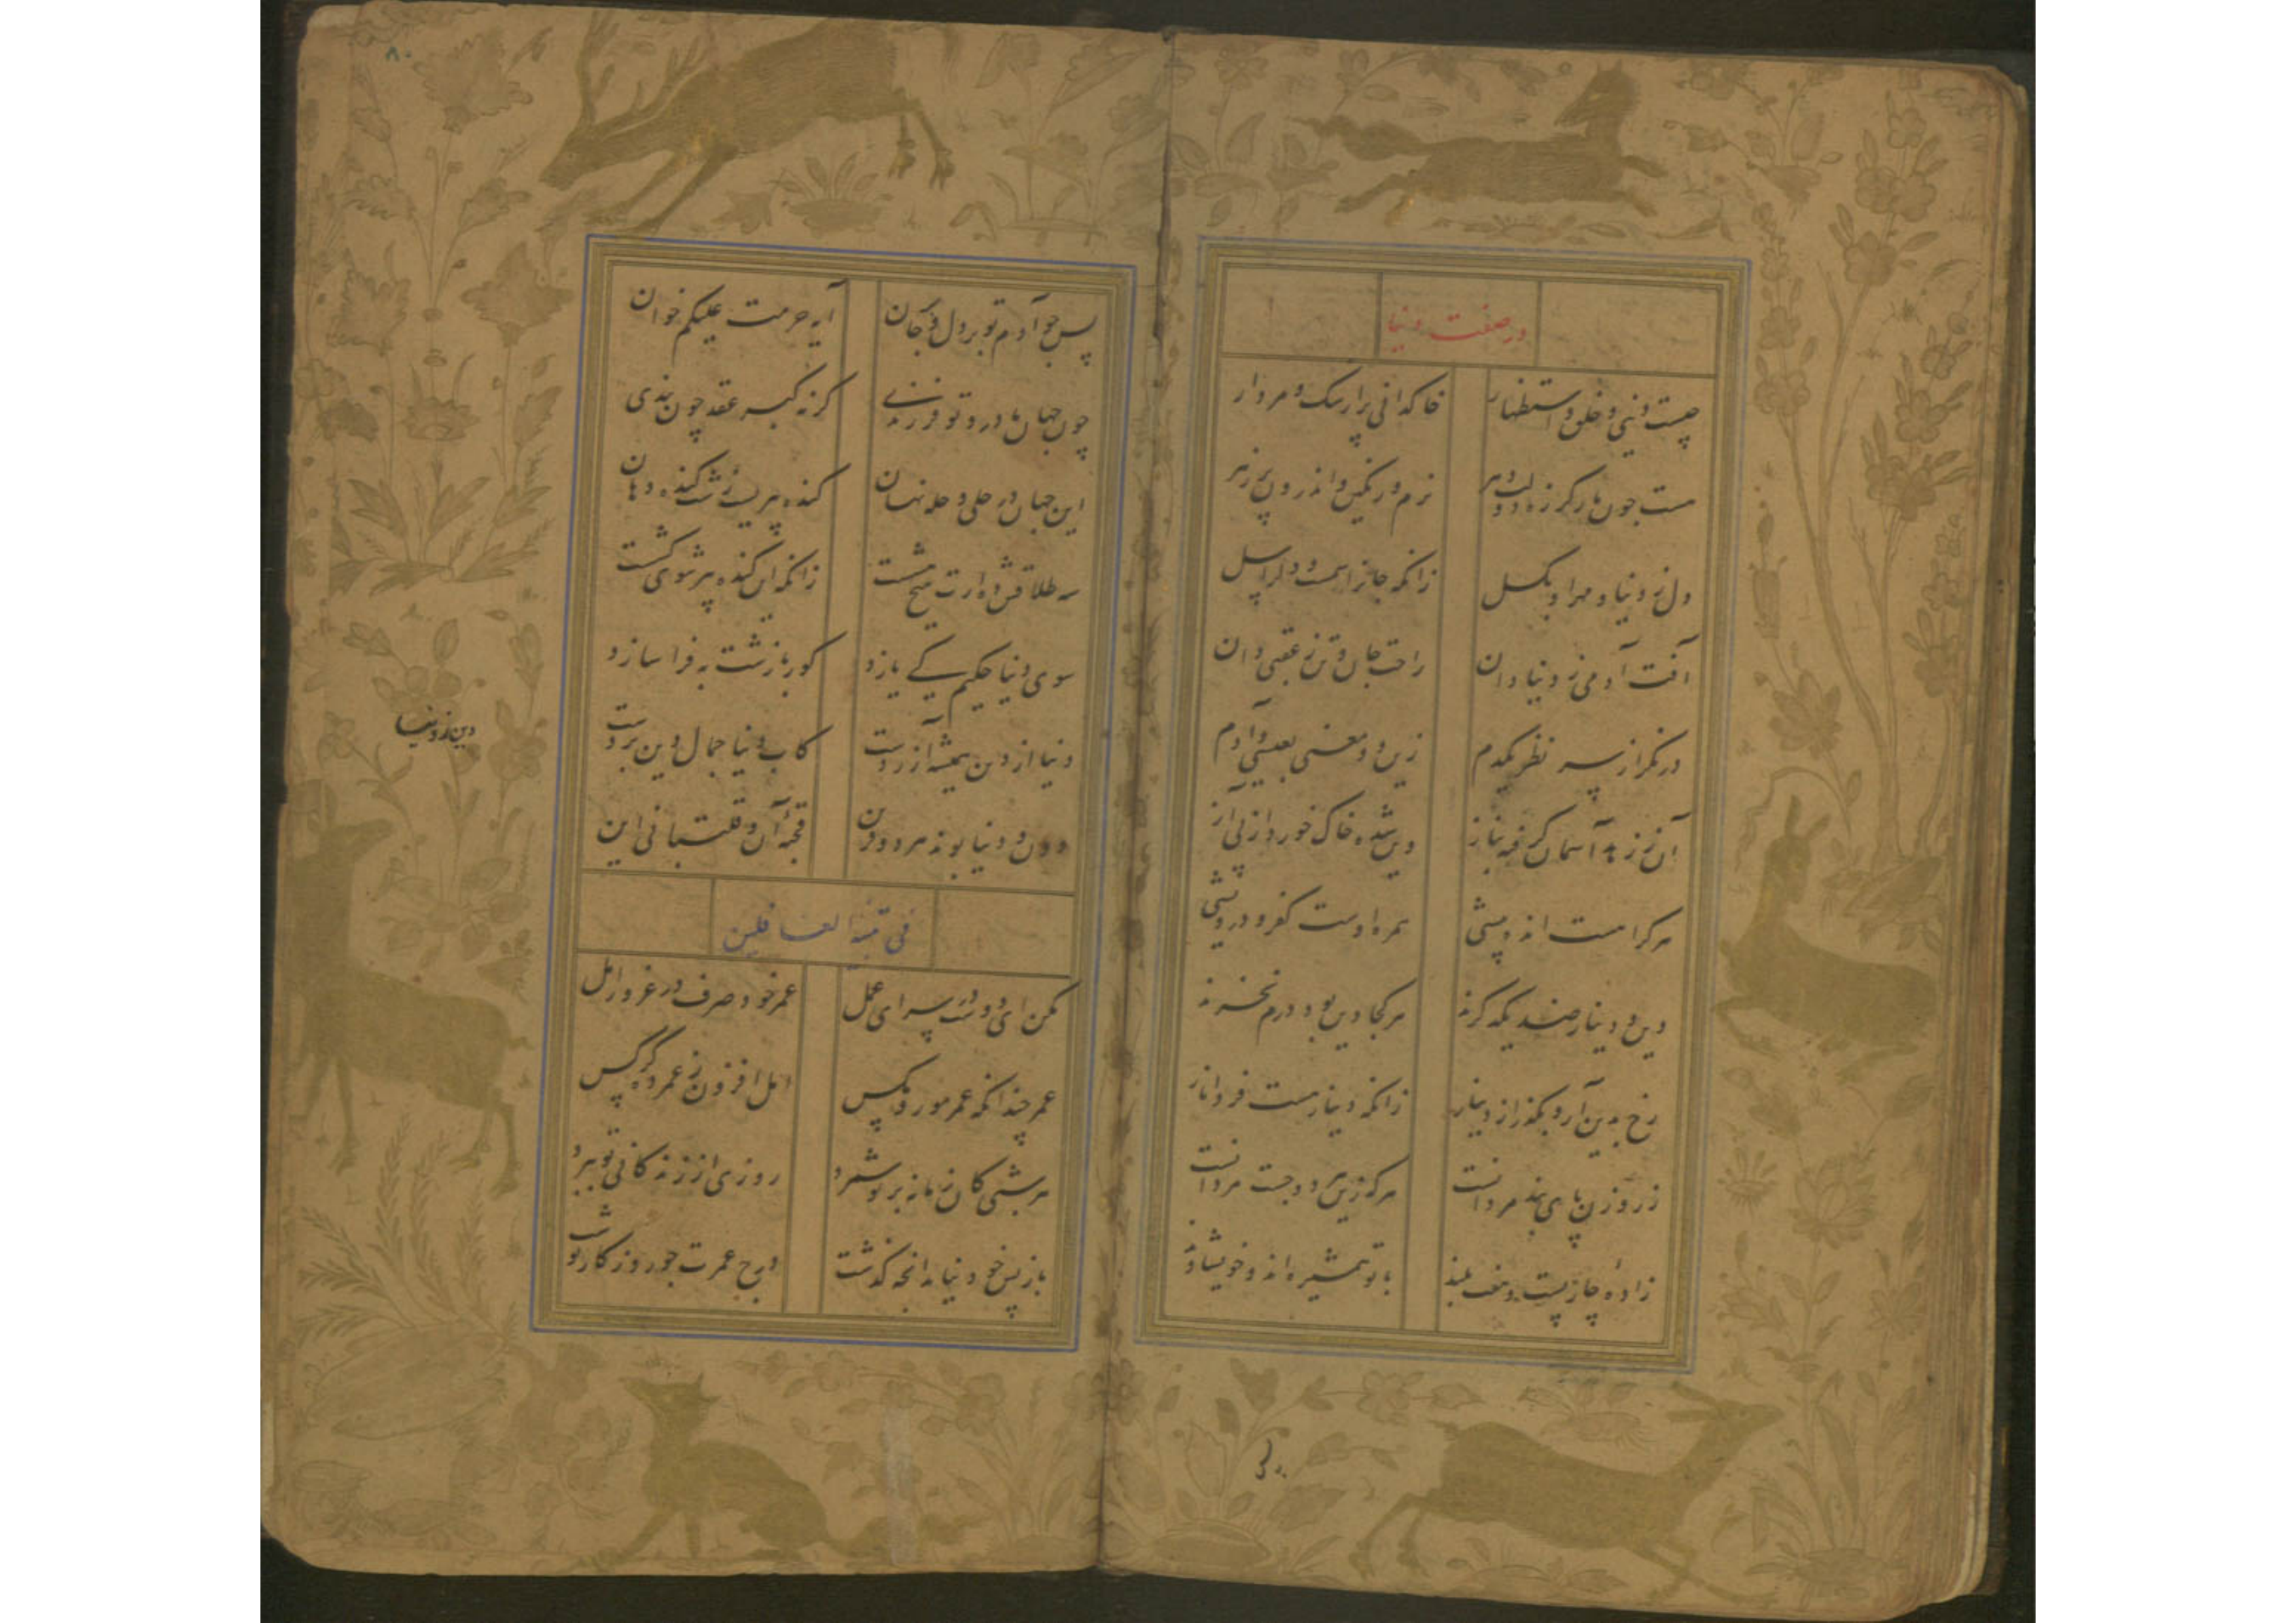 در صفت دنیا
چیست دنیی و خلق و استظهار خاکدانی پر از سک و مردار
مست چون مار کرزه دولت دهر نرم و رنکین و اندرون پر زهر
دل ز دنیا و مهر او بکسل زانکه جانرا سمست و دلرا سل
آفت آدمی ز دنیا دان راحت جان و تن ز عقبی دان
درنکر از سر نظر یکدم زین دو معنی بعیسی و آدم
آن ز زهد آسمان کرفه بناز وین شده خاک خورد از پی آز
هرکرا هست انده بیشی همره اوست کفر و درویشی
دین و دینار ضد یکدکرند هرکجا دین بود درم نخرند
رخ بدین آر و بکذر از دینار زانکه دینار هست فردا نار
زر و زن پای بند مردانست هرکه زین هر دو جست مرد آنست
زاده چار پست و هفت بلند با تو همشیره اند و خویشاوند
پس چو آدم تو بر دل و بر جان آیه حرمت علیکم خوان
چون جهان مادر و تو فرزندی کرنه کبری عقد چون بندی
این جهان در حلی و حله نهان کنده پیریست زشت کنده دهان
سه طلاقش ده ارت هیچ هشست زانکه این کنده پیر شوی کشست
سوی دنیا حکیم کی یازد کور باز زشت به فرا سازد
دنیا از دین همیشه آزردست کاب دنیا جمال دین بردست
دون و دنیا بوند هر دو قرین قحبه آن و قلتبانی این
فی تنبه الغافلین
مکن ای دوست در سرای عمل عمر خود صرف در غرور امل
عمر چندانکه عمر مور و مکس امل افزون ز عمر ده کرکس
هر شبی کان زمانه بر تو شمرد روزی از زندکانی تو ببرد
باز پس خود نیامد انچه کذشت درج عمرت چو روزکار نوشت
دین ز دنیا
۸۰